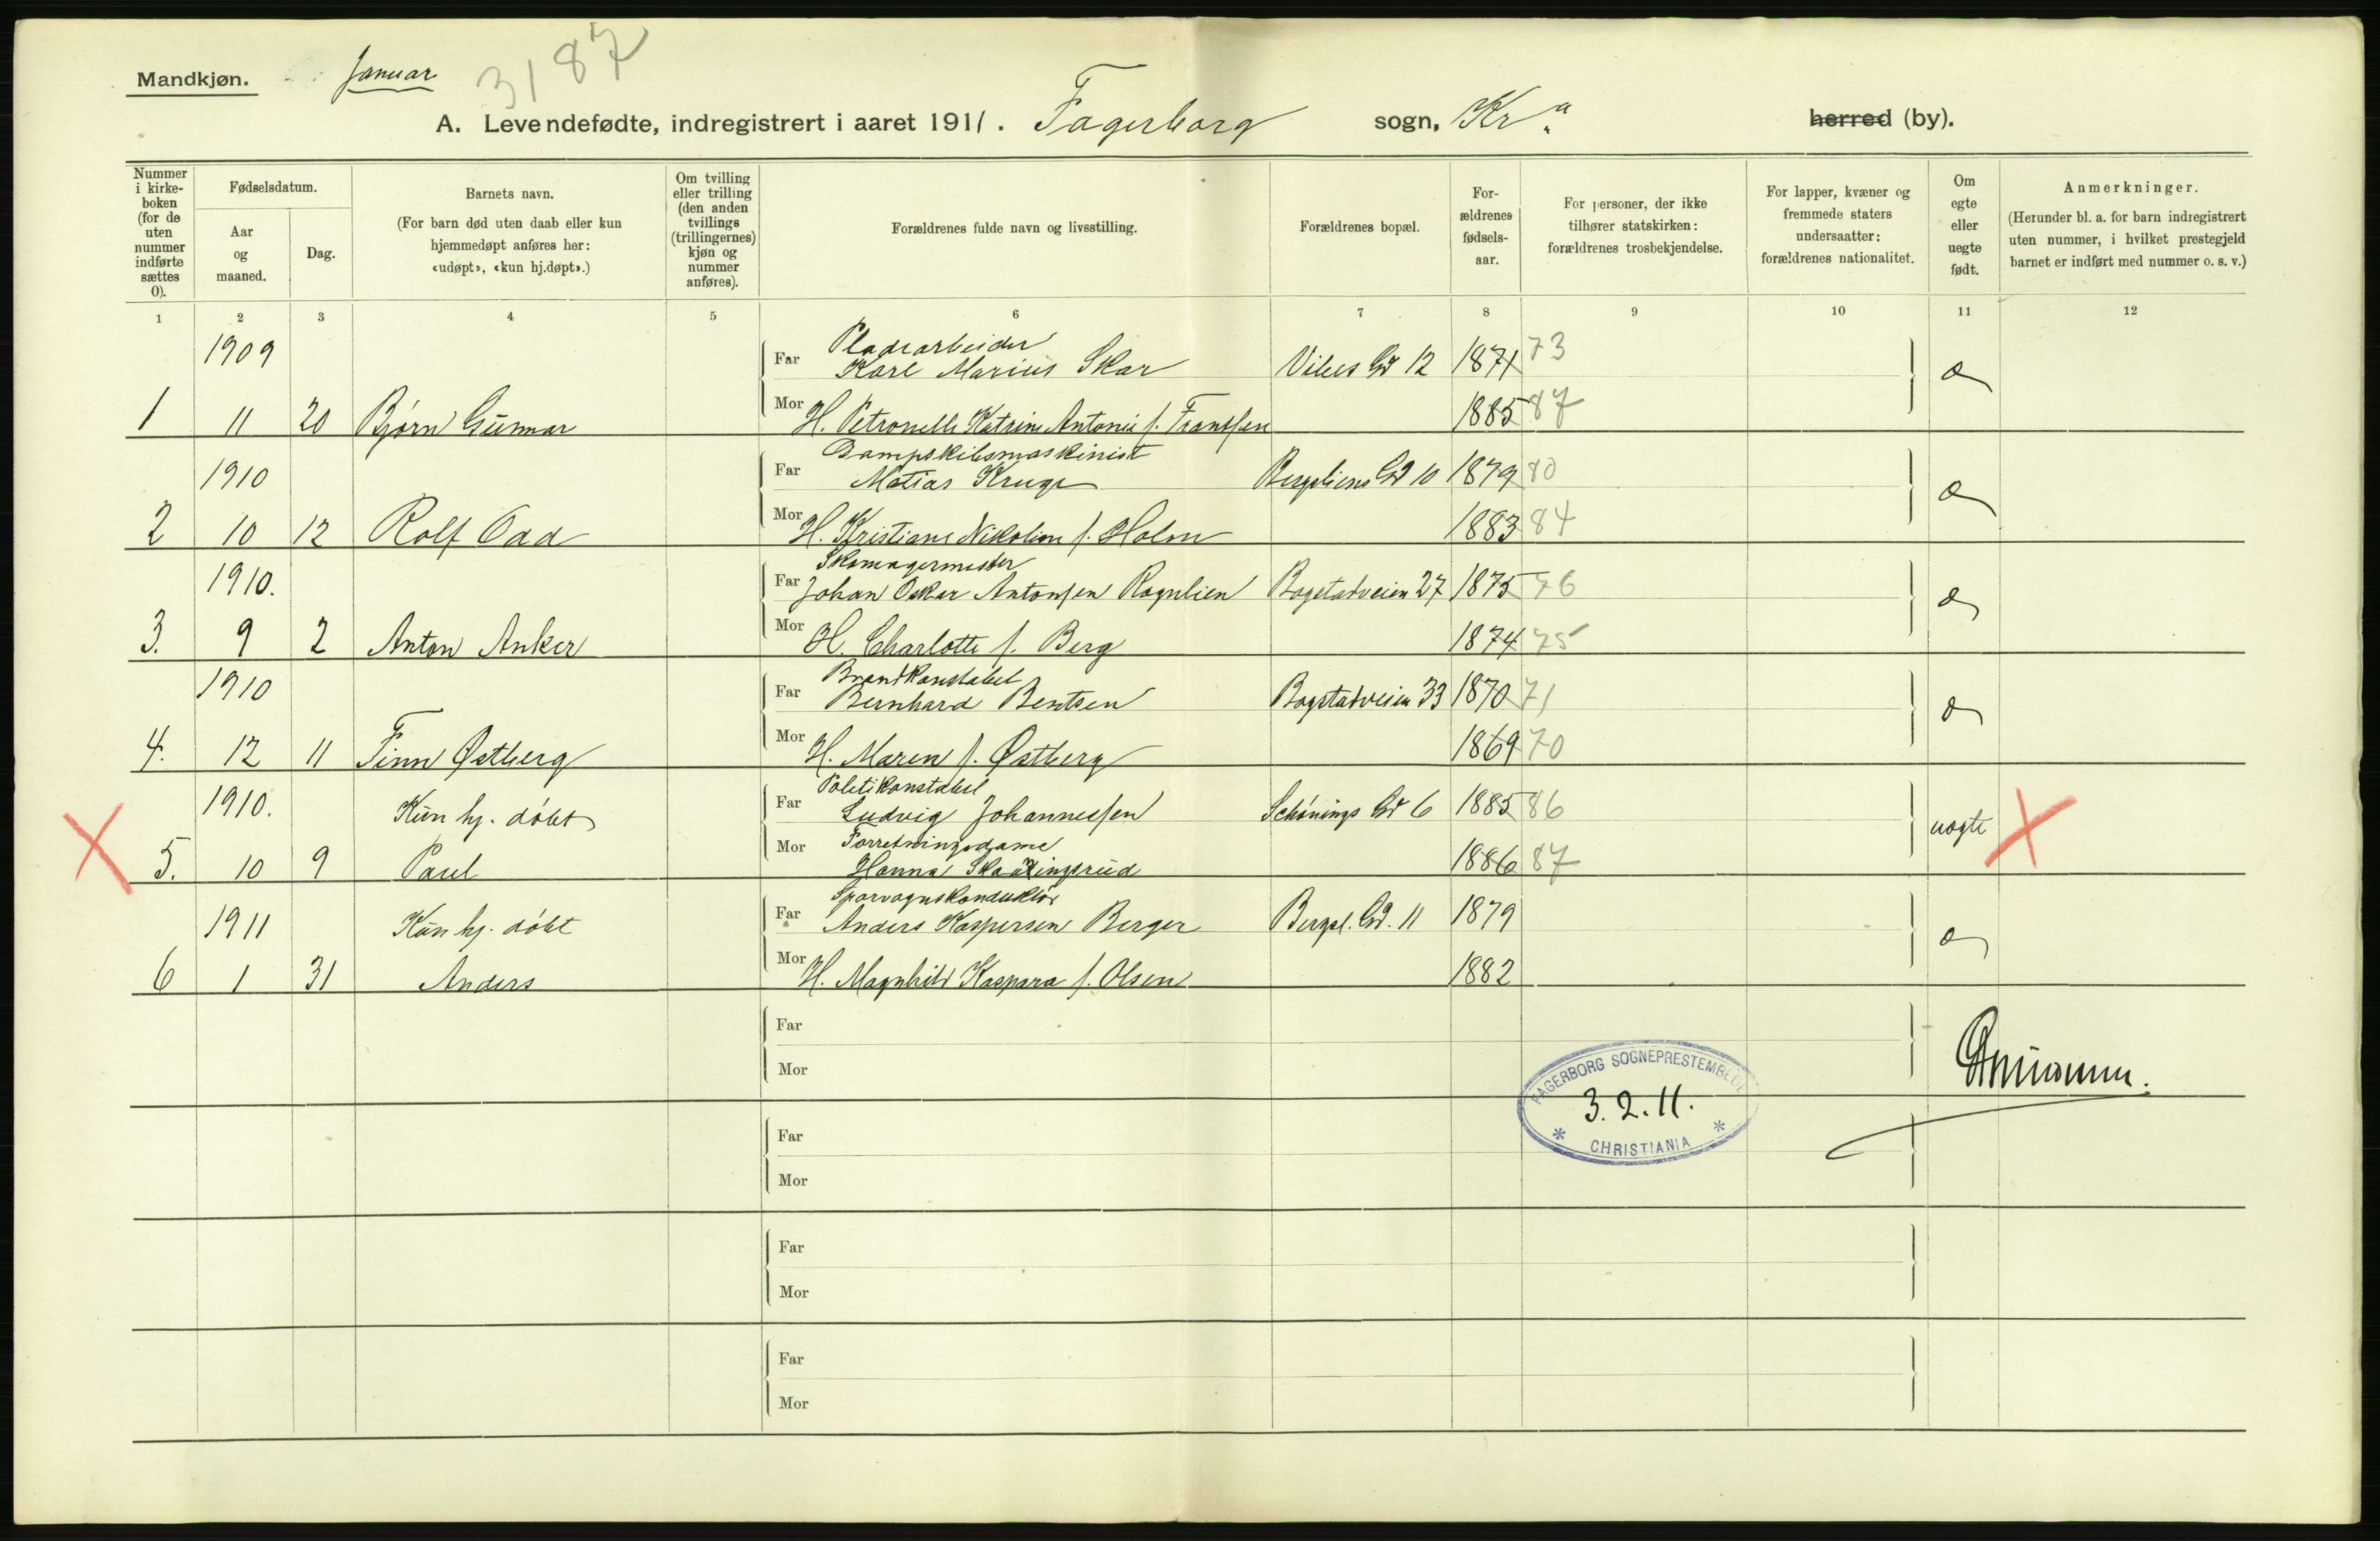 Mandkjøn.
Januar
3187
A. Levendefødte, indregistrert i aaret 1911. Fagerborg sogn, Kra herred (by).
Nummer i kirke-boken (for de uten nummer indførte sættes 0).
Fødselsdatum.
Aar og maaned.
Dag.
Barnets navn.
(For barn død uten daab eller kun hjemmedøpt anføres her: «udøpt», «kun hj.døpt».)
Om tvilling eller trilling (den anden tvillings (trillingernes) kjøn og nummer anføres).
Forældrenes fulde navn og livsstilling.
Forældrenes bopæl.
For-ældrenes fødsels-aar.
For personer, der ikke tilhører statskirken: forældrenes trosbekjendelse.
For lapper, kvæner og fremmede staters undersaatter: forældrenes nationalitet.
Om egte eller uegte født.
Anmerkninger.
(Herunder bl. a. for barn indregistrert uten nummer, i hvilket prestegjeld barnet er indført med nummer o. s. v.)
1 2 3 4 5 6 7 8 9 10 11 12
1909 Pladearbeider
Far Karl Marius Skar 1871 73
Vibes Gd 12
1 11 20 Bjørn Gunnar Mor H. Petronelle Katrine Antonie f. Frantsen 1885 87
1910 Dampskibsmaskinist
Far Matias Kruge Bergsliens Gd 10 1879 80
2 10 12 Rolf Odd Mor H. Kristiane Nikoline f. Holm 1883 84
1910. Skomagermester
Far Johan Oskar Antonsen Rognlien Bogstadveien 27 1875 76
3. 9 2 Anton Anker Mor H. Charlotte f. Berg 1874 75
1910 Brandkonstabel
Far Bernhard Bentsen Bogstadveien 33 1870 71
4. 12 11 Finn Østberg Mor H. Maren f. Østberg 1869 70
1910. Kun hj. døbt Politikonstabel
Far Ludvig Johannessen Schønings Gd 6 1885 86
uegte
Mor Forretningsdame
5. 10 9 Paul Hanna Skaaringsrud 1886 87
1911 Kun hj. døbt Sporvognskonduktør
Far Anders Kaspersen Berger Bergsl. Gd. 11 1879
6 1 31 Anders Mor H. Magnhild Kaspara f. Olsen 1882
Far
Mor
FAGERBORG SOGNEPRESTEMBEDE
3.2.11.
* CHRISTIANIA *
Far
Mor
Far
Mor
Far
Mor